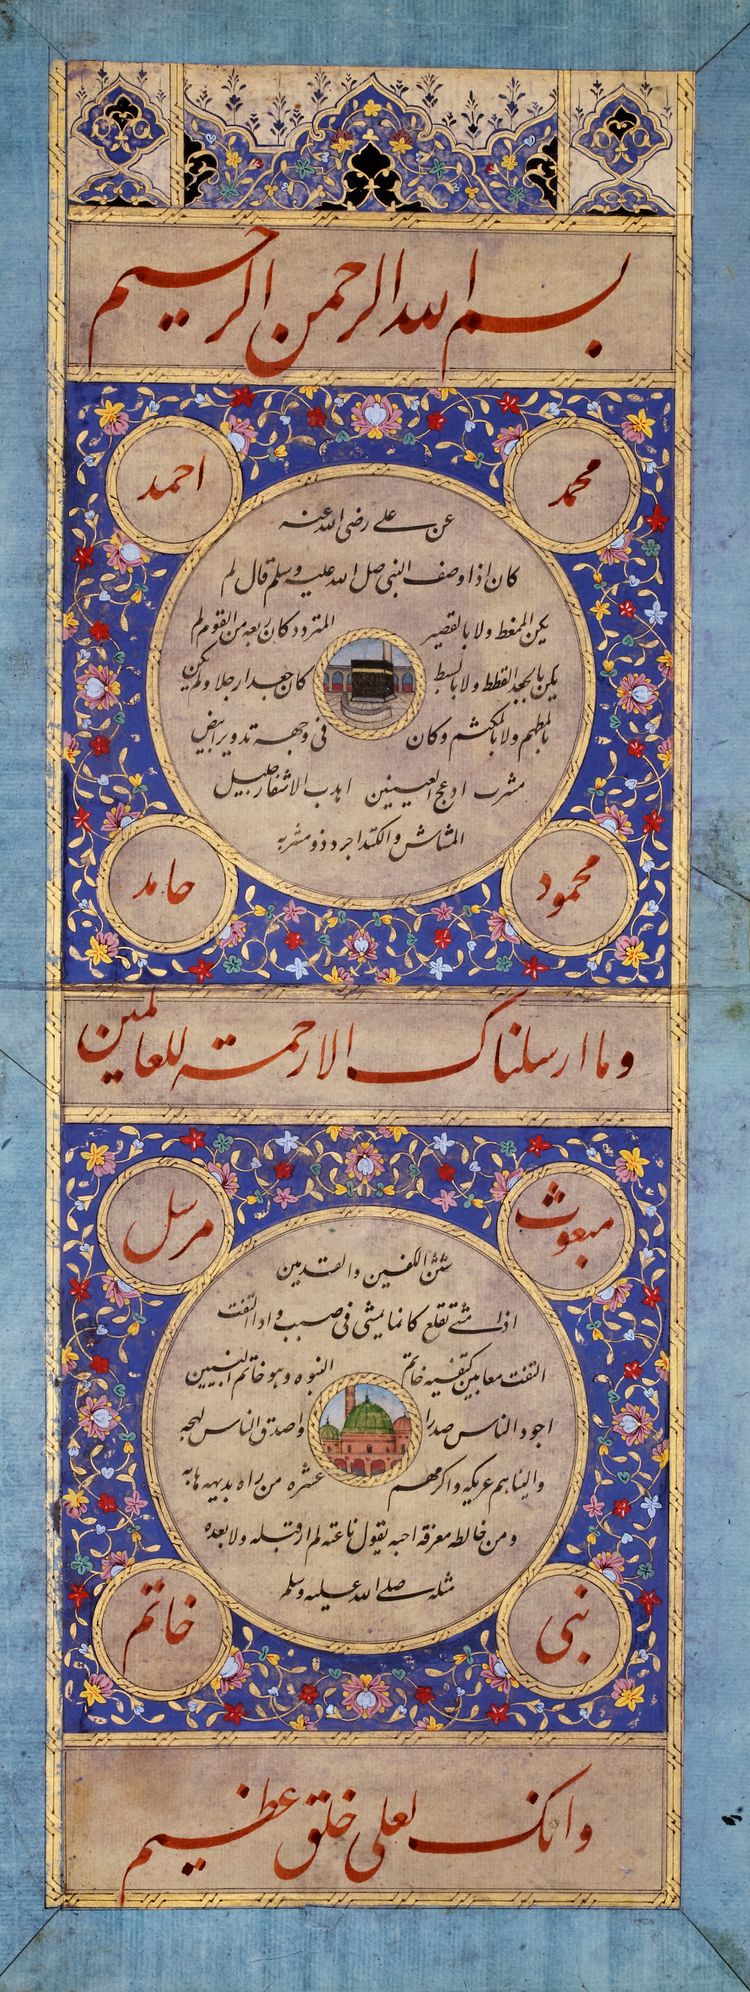 بسم الله الرحمن الرحيم
محمد
احمد
عن علي رضى الله عنه
كان اذا وصف النبى صل الله عليه وسلم قال لم
يكن المغط ولا بالقصير المتردد كان ربعه من القوم لم
يكن بالجعد القطط ولا بالسبط كان جعدا رجلا ولم يكن
بالمطهم ولا بالمكلثم وكان فى وجهه تدوير ابيض
مشرب ادعج العينين اهدب الاشفار جليل
المشاش والكتد اجرد ذو مشربه
محمود
حامد
وما ارسلناك الا رحمة للعالمين
مبعوث
مرسل
شثن الكفين والقدمين
اذا مشى تقلع كانما يمشى فى صبب واذا التفت
التفت معا بين كتفيه خاتم النبوه وهو خاتم النبيين
اجود الناس صدرا واصدق الناس لهجه
والينا هم عريكه واكرمهم عشره من راه بديهه هابه
ومن خالطه معرفة احبه يقول ناعته لم ار قبله ولا بعده
مثله صلى الله عليه وسلم
نبى
خاتم
وانك لعلى خلق عظيم